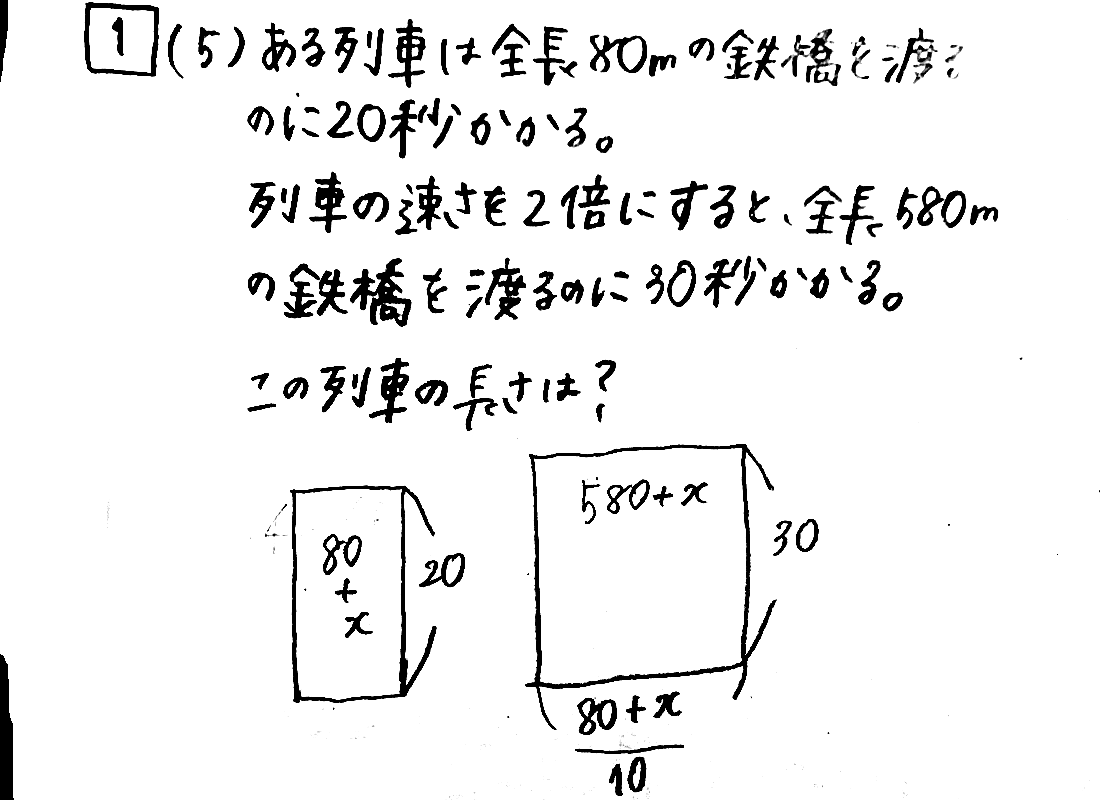 1 (5) ある列車は全長80mの鉄橋を渡る
のに20秒かかる。
列車の速さを2倍にすると、全長580m
の鉄橋を渡るのに30秒かかる。
この列車の長さは?
80
+
x
20
580+x
30
80+x
10